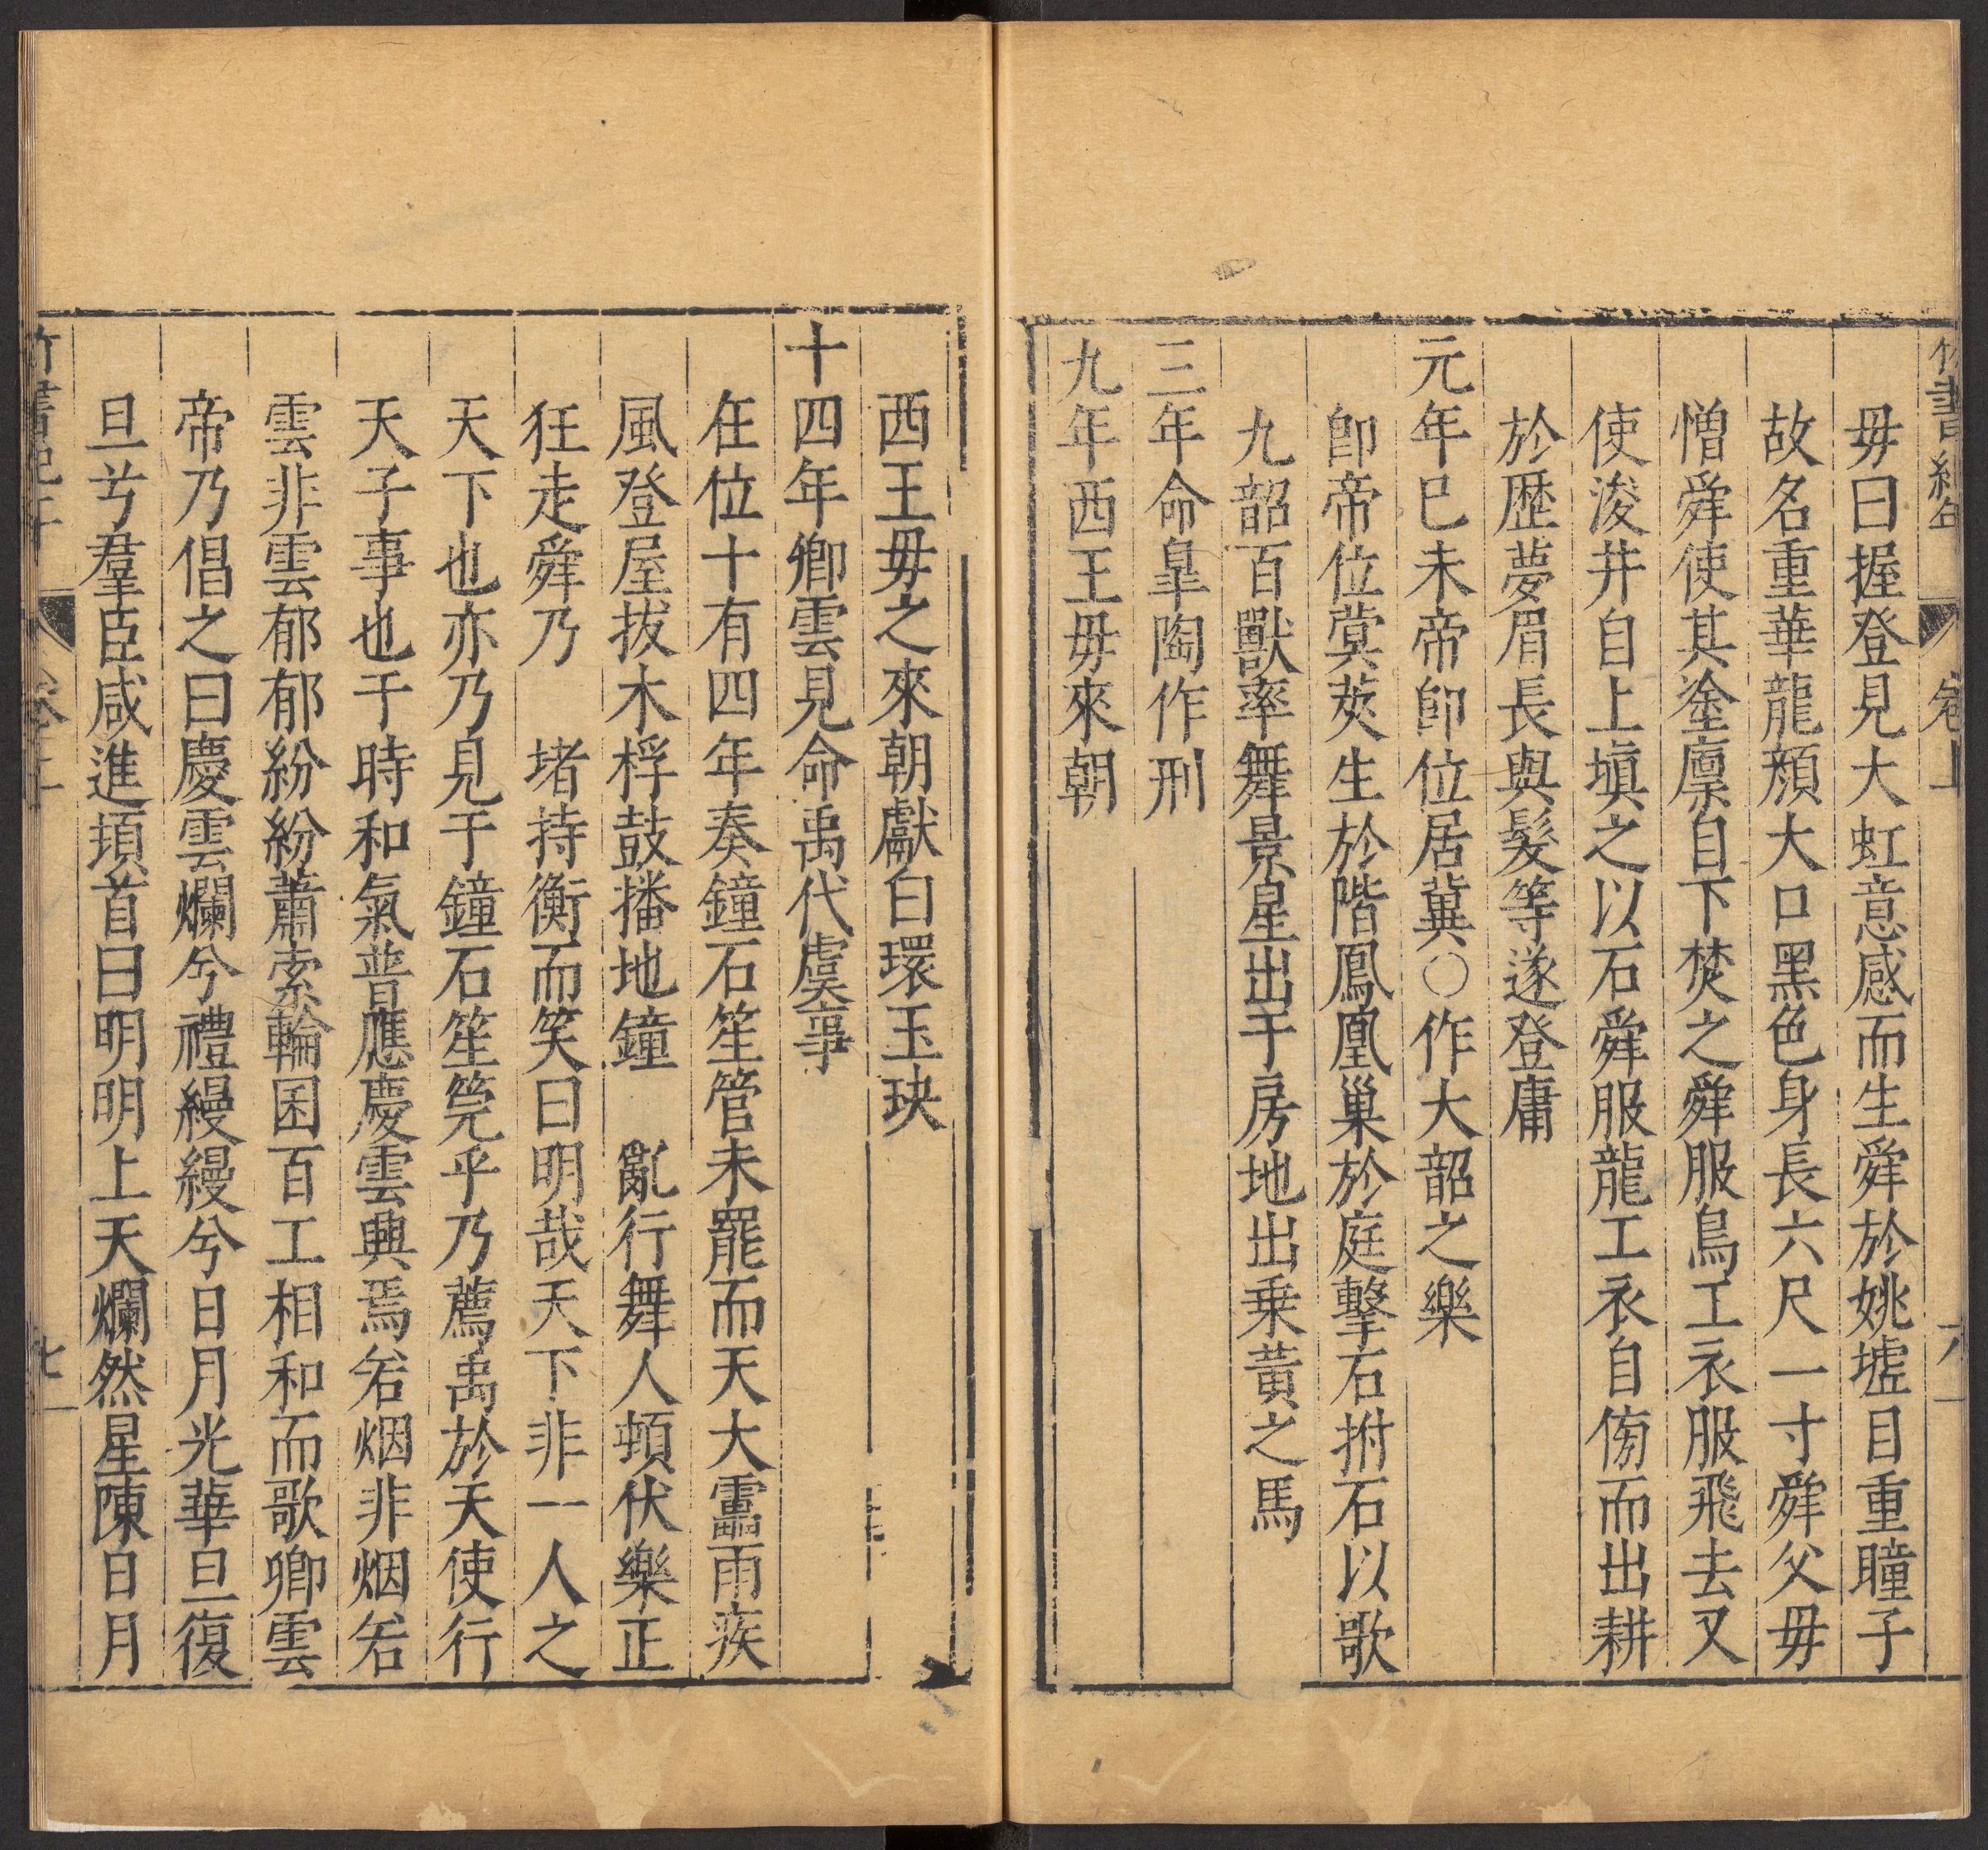 竹書紀年 卷上 六
毋曰握登見大虹意感而生舜於姚墟目重瞳子
故名重華龍顏大口黑色身長六尺一寸舜父毋
憎舜使其塗廪自下焚之舜服鳥工衣服飛去又
使浚井自上塡之以石舜服龍工衣自傍而出耕
於歷夢眉長與髮等遂登庸
元年巳未帝卽位居冀○作大韶之樂
卽帝位蓂莢生於階鳳凰巢於庭擊石拊石以歌
九韶百獸率舞景星出于房地出乗黃之馬
三年命臯陶作刑
九年西王毋來朝
西王毋之來朝獻白環玉玦
十四年卿雲見命禹代虞事
在位十有四年奏鐘石笙管未罷而天大靁雨疾
風登屋拔木桴鼓播地鐘 亂行舞人頓伏樂正
狂走舜乃 堵持衡而笑曰明哉天下非一人之
天下也亦乃見于鐘石笙筦乎乃薦禹於天使行
天子事也于時和氣普應慶雲興焉若烟非烟若
雲非雲郁郁紛紛蕭索輪囷百工相和而歌卿雲
帝乃倡之曰慶雲爛兮禮縵縵兮日月光華旦復
旦兮羣臣咸進頊首曰明明上天爛然星陳日月
竹書紀年 卷上 七